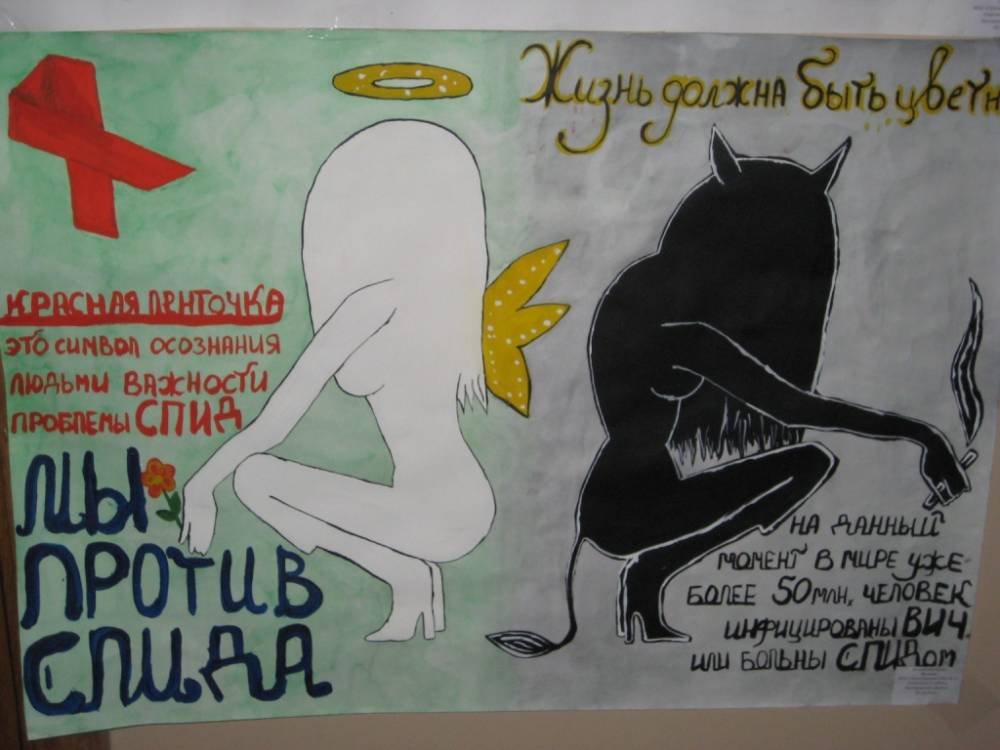 Жизнь должна быть цветн
КРАСНАЯ ЛЕНТОЧКА
ЭТО СИМВОЛ ОСОЗНАНИЯ
ЛЮДЬМИ ВАЖНОСТИ
ПРОБЛЕМЫ СПИД
МЫ
ПРОТИВ
СПИДА
НА ДАННЫЙ
МОМЕНТ В МИРЕ УЖЕ
БОЛЕЕ 50 МЛН. ЧЕЛОВЕК
ИНФИЦИРОВАНЫ ВИЧ
ИЛИ БОЛЬНЫ СПИДОМ